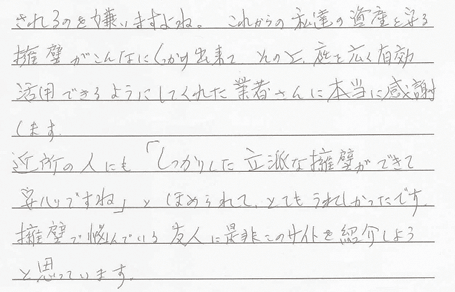 されるのを嫌いますよね。これからの私達の資産を守る
擁壁がこんなにしっかり出来て その上、庭を広く有効
活用できるようにしてくれた業者さんに本当に感謝
します。
近所の人にも「しっかりした立派な擁壁ができて
安心ですね」と ほめられて、とてもうれしかったです。
擁壁で悩んでいる友人に是非このサイトを紹介しよう
と思っています。